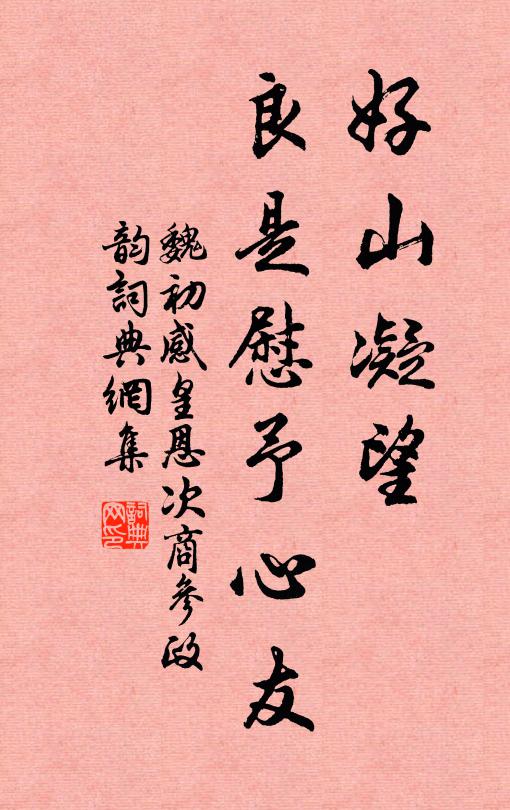 好山凝望
良是慰予心友
魏初感皇恩次商參政
韵詞典網集
詞典网印